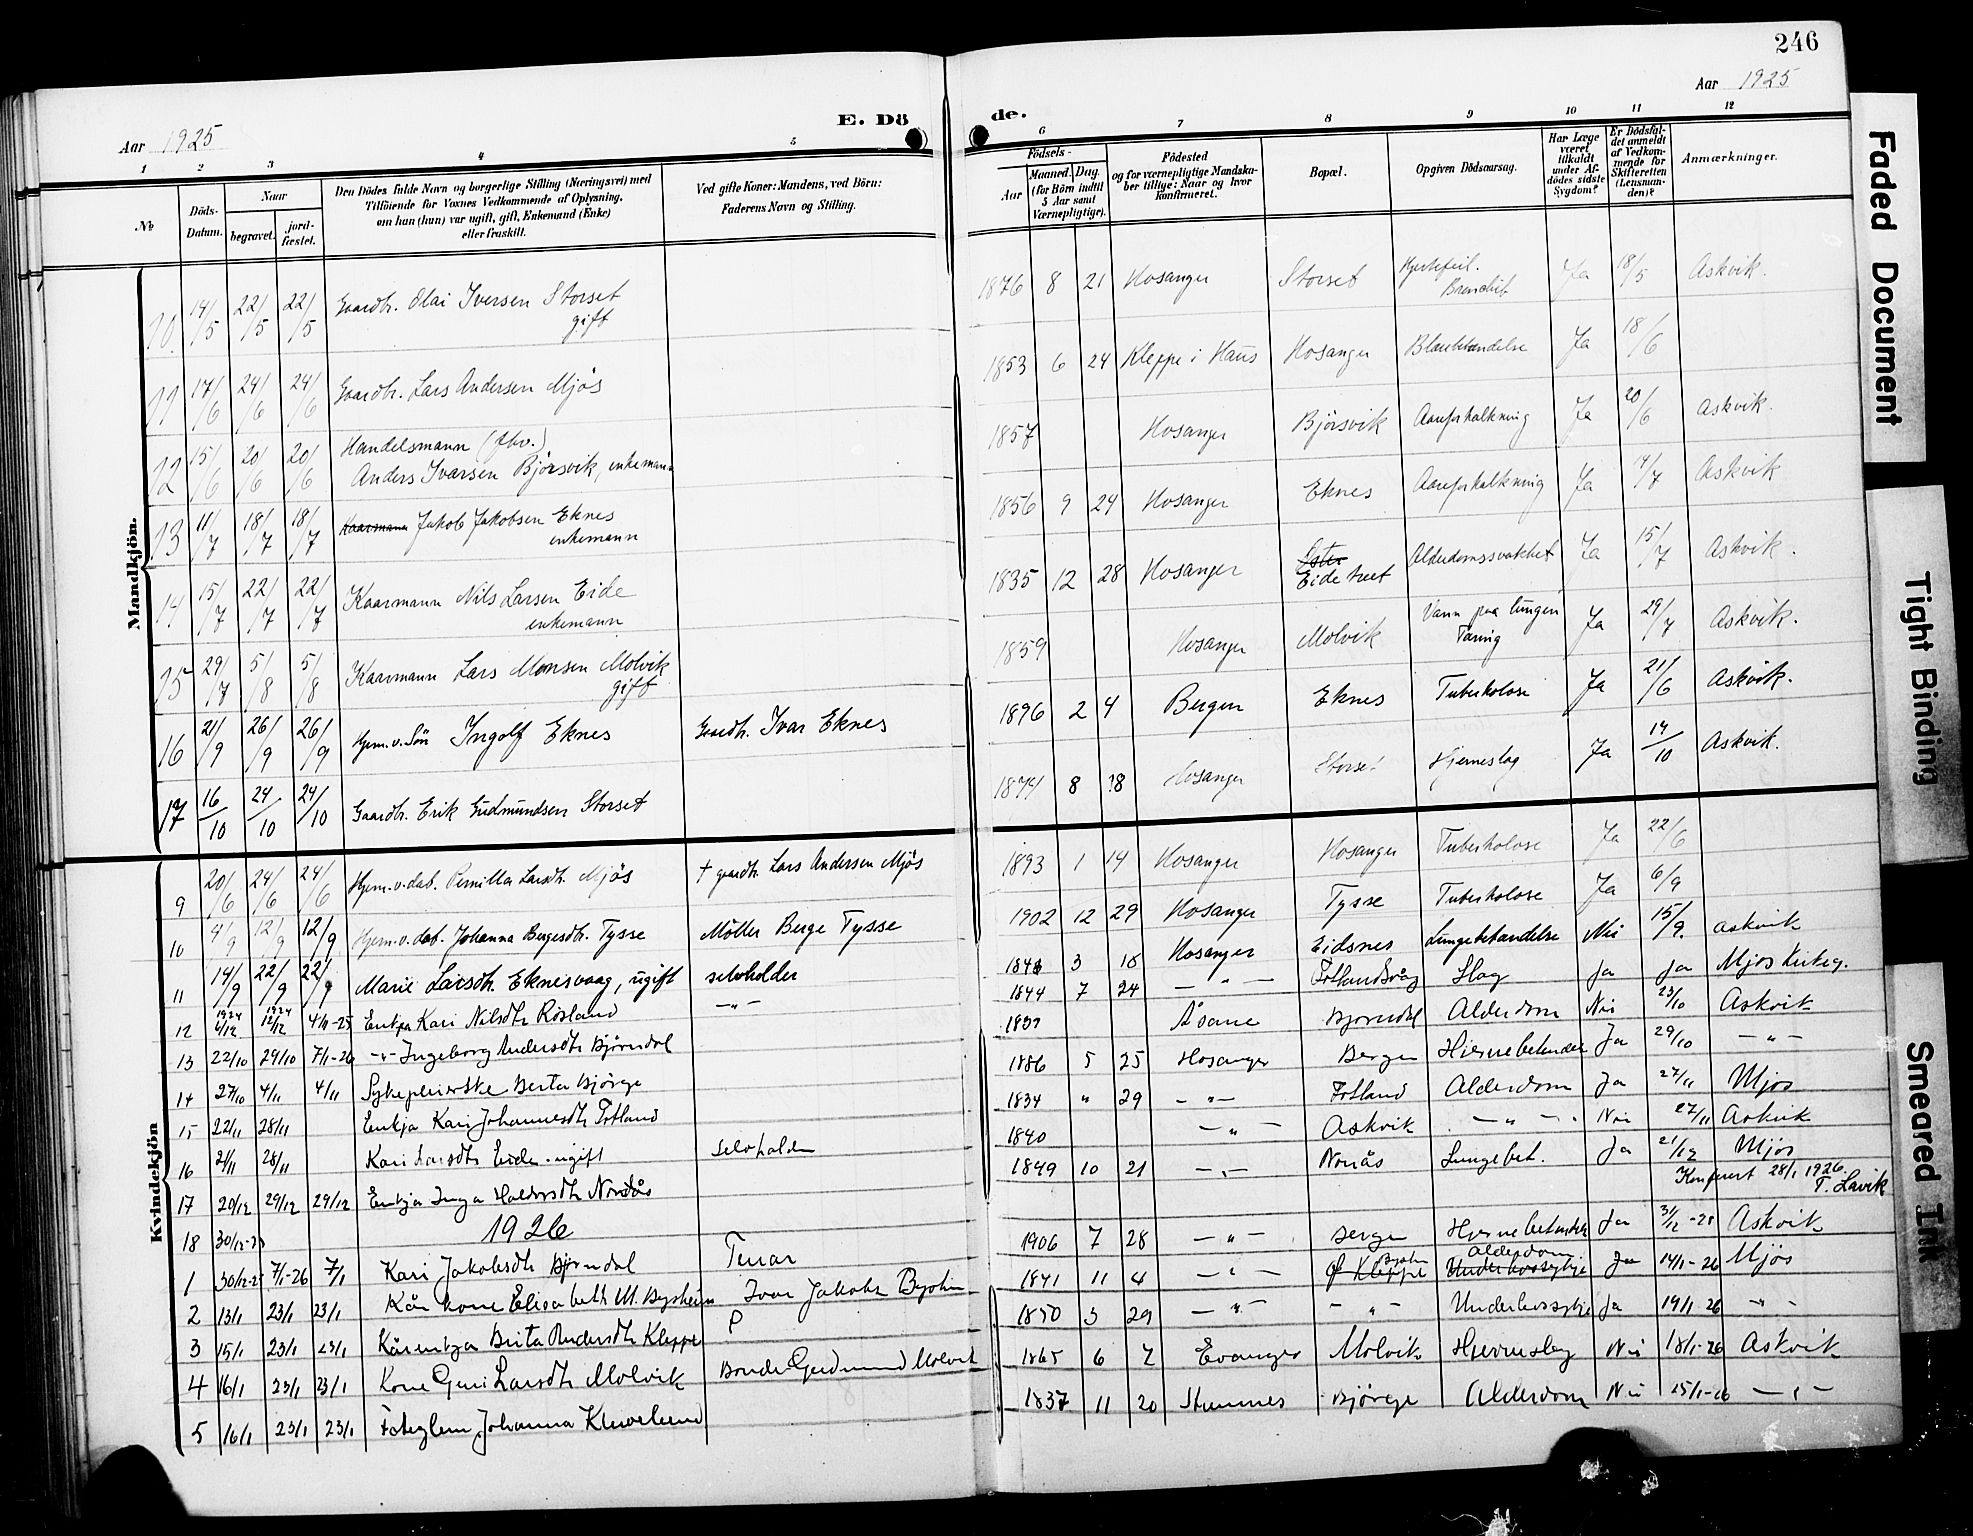 246
Aar 1925
Aar 1925
E. Dö
de.
1 2 3 4 5
6 7 8 9 10 11 12
№
Döds-Datum.
Naar
begravet.
jord-fæstet.
Den Dödes fulde Navn og borgerlige Stilling (Næringsvei) med
Tilföiende for Voxnes Vedkommende af Oplysning,
om han (hun) var ugift, gift, Enkemand (Enke)
eller fraskilt.
Ved gifte Koner: Mandens, ved Börn:
Faderens Navn og Stilling.
Födsels-
Aar
Maaned. Dag.
(for Börn indtil
5 Aar samt
Værnepligtige).
Födested
og for værnepligtige Mandska-
ber tillige: Naar og hvor
konfirmeret.
Bopæl.
Opgiven Dödsaarsag.
Har Læge
været
tilkaldt
under Af-
dödes sidste
Sygdom?
Er Dödsfal-
det anmeldt
af Vedkom-
mende for
Skifteretten
(Lensman-
den)?
Anmærkninger.
Mandkjön.
10 14/5 22/5 22/5 Gaardbr. Olai Iversen Storset
gift
1876 8 21 Hosanger Storset Hjertefeil. Ja 18/5 Askvik.
11 17/6 24/6 24/6 Gaardbr. Lars Andersen Mjös
1853 6 24 Kleppe i Haus Hosanger Ja 18/6
12 15/6 20/6 20/6 Handelsmann (fhv.)
Anders Ivarsen Björsvik, enkemann
1857 Hosanger Björsvik Aareforkalkning Ja 20/6 Askvik.
13 11/7 18/7 18/7 Kaarmann Jakob Jakobsen Eknes
enkemann
1856 9 24 Hosanger Eknes Aareforkalkning Ja 14/7 Askvik
14 15/7 22/7 22/7 Kaarmann Nils Larsen Eide
enkemann
1835 12 28 Hosanger Eidetreet Alderdomssvakhet Ja 15/7 Askvik.
15 29/7 5/8 5/8 Kaarmann Lars Monsen Molvik
gift
1859 Hosanger Molvik Vann paa lungen Ja 29/7 Askvik.
16 21/9 26/9 26/9 Hjem.v. Sön Ingolf Eknes Gaardbr. Ivar Eknes
1896 2 4 Bergen Eknes Tuberkolose Ja 21/6 Askvik.
17 16/10 24/10 24/10 Gaardbr. Erik Gudmundsen Storset
1874 8 18 Hosanger Storset Hjerneslag Ja 14/10 Askvik.
Kvindekjön
9 20/6 24/6 24/6 Hjem.v.dat. Pernilla Larsdtr. Mjös † gaardbr. Lars Andersen Mjös
1893 1 14 Hosanger Hosanger Tuberkolose Ja 22/6
10 4/9 12/9 12/9 Hjem.v.dat. Johanna Bergesdtr. Tysse Möller Berge Tysse
1902 12 29 Hosanger Tysse Tuberkolose Ja 6/9
11 14/9 22/9 22/9 Marie Larsdtr. Eknesvaag, ugift selvholder
3 18 Hosanger Eidsnes Lungebetændelse Nei 15/9. askvik
12 1924 4/12 1924 12/12 4/11-25 Enkja Kari Nilsdtr Rösland -"-
1844 7 24 -"- Fotlandsvåg Slag Ja Ja Mjös Kirkeg.
13 22/10 29/10 7/1-26 -"- Ingeborg Andersdtr Björndal
Åsane Bjørndal Alderdom Nei 23/10 Askvik
14 27/10 4/11 4/11 Sykepleierske Berta Björge
1886 5 25 Hosanger Bergen Hjernebetender Ja 29/10 -"-
15 22/11 28/11 Enkja Kari Johannesdtr Fotland
1834 " 29 -"- Fotland Alderdom Ja 27/11 Mjös
16 21/11 28/11 Kari Larsdtr Eide ugift selvholder
1840 -"- Askvik -"- Nei 27/11 Askvik
17 20/12 29/12 29/12 Enkja Inga Haldorsdtr Nordås
1849 10 21 -"- Nordås Lungebet. Ja 21/12 Mjös
Konferert 28/1 1926.
T. Lavik
18 30/12-25 1926
1 30/12-25 7/1-26 7/1 Kari Jakobsdtr Björndal
1906 7 28 -"- Bergen Hjernebetender Ja 31/12-25 Askvik
2 13/1 23/1 23/1 Kårkone Elisabeth M. Bysheim Ivar Jakobs Bysheim
1841 11 4 -"- Ø Kleppe Bysheim Underlivssykje Alderdom Ja 14/1-26 Mjös
3 15/1 23/1 23/1 Kårenkja Brita Andersdtr Kleppe
1850 3 29 -"- -"- Underlivssykje Ja 19/1-26 -"-
4 16/1 23/1 23/1 Kone Guri Larsdtr Molvik Bonde Gudmund Molvik
1865 6 7 Evanger Molvik Hjerneslag Nei 18/1-26 Askvik
5 16/1 23/1 23/1 Johanna
1837 11 20 Björge Alderdom Nei 25/1-26 -"-
Faded Document
Tight Binding
Smeared Ink